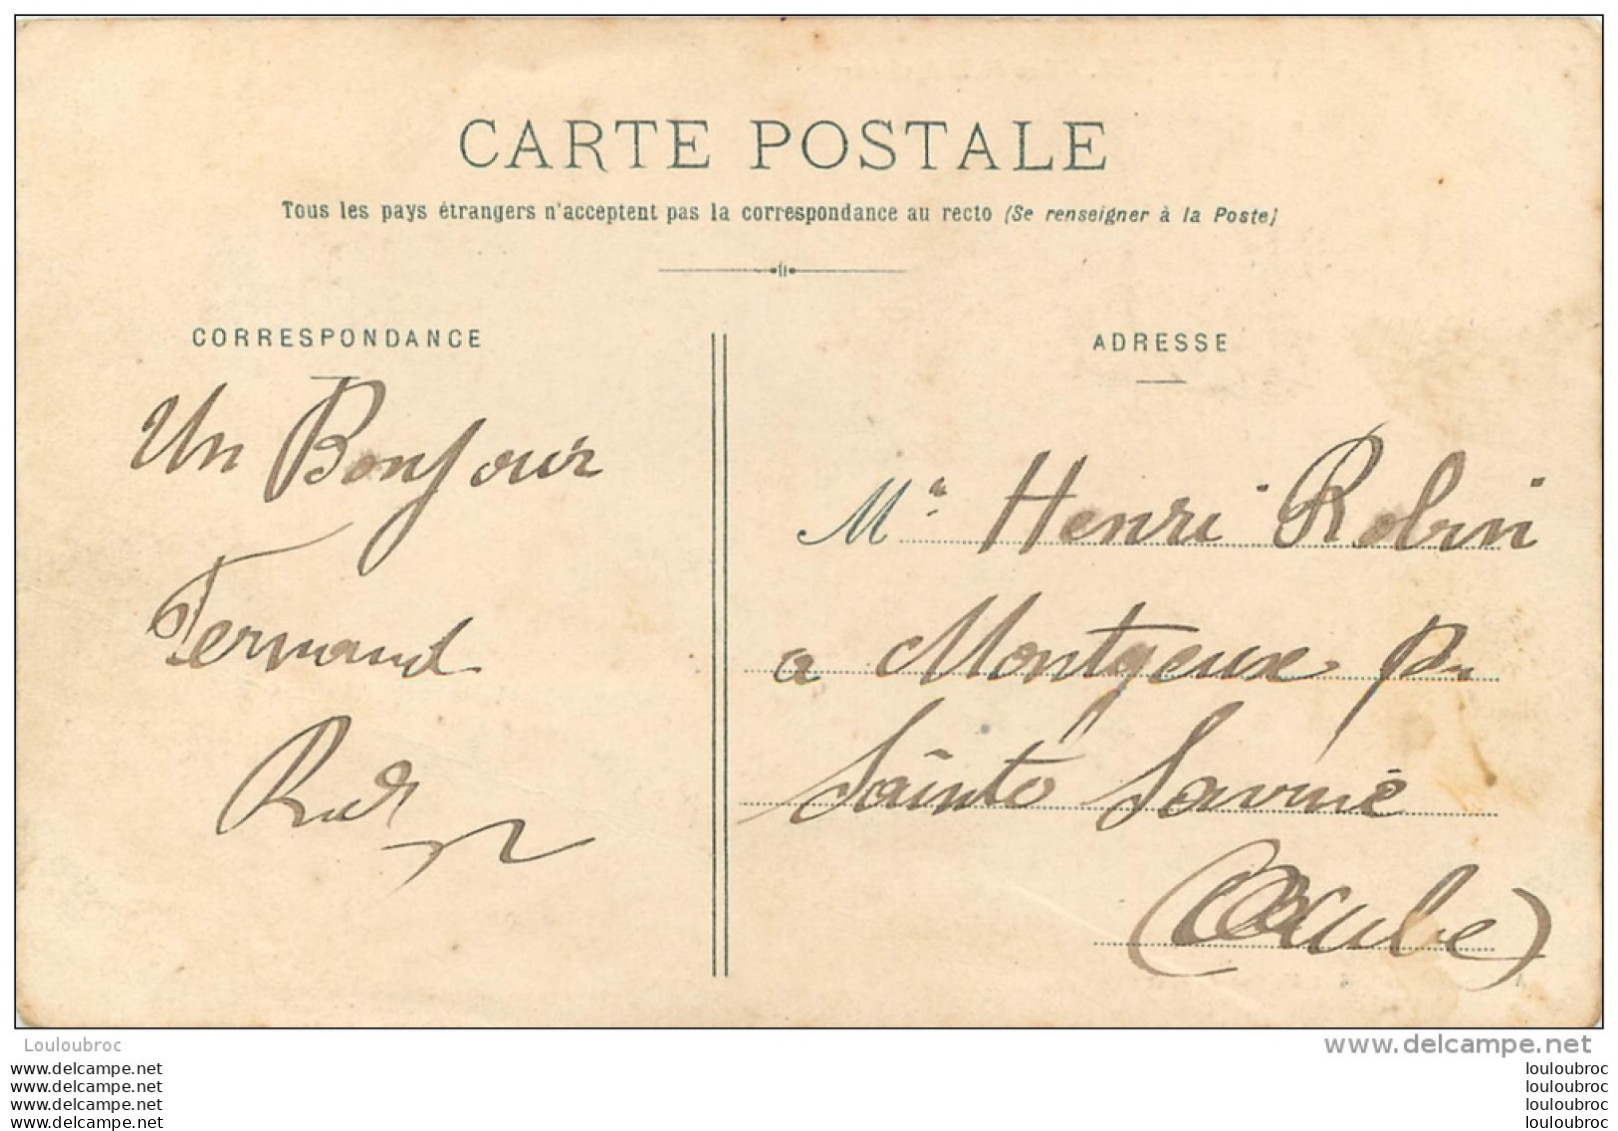 CARTE POSTALE
Tous les pays étrangers n'acceptent pas la correspondance au recto (Se renseigner à la Poste)
CORRESPONDANCE
Un Bonjour
Fernand
ADRESSE
Mr Henri Robin
a Montgeux pr
Sainte Savine
(Aube)
Louloubroc
www.delcampe.net
www.delcampe.net
www.delcampe.net
www.delcampe.net
www.delcampe.net
louloubroc
louloubroc
louloubroc
louloubroc